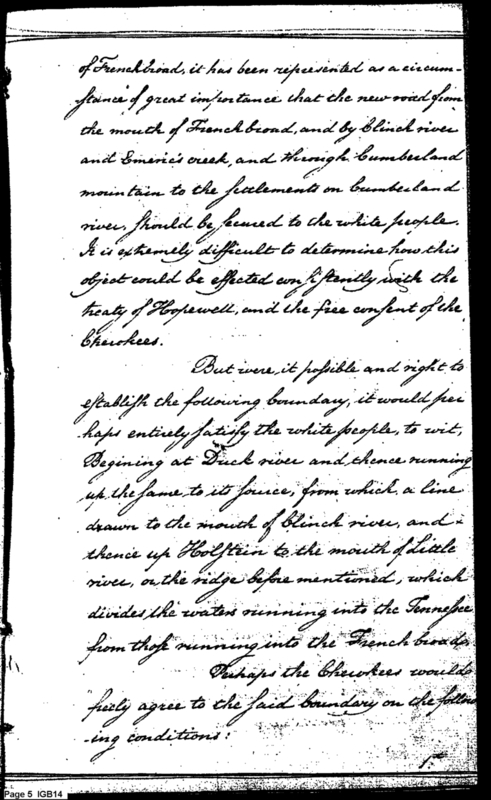 of French broad, it has been represented as a circum-
stance of great importance that the new road from
the mouth of French broad, and by Clinch river
and Emerie's creek, and through Cumberland
mountain to the settlements on Cumberland
river, should be secured to the white people.
It is extremely difficult to determine how this
object could be effected consistently with the
treaty of Hopewell, and the free consent of the
Cherokees.
But were it possible and right to
establish the following boundary, it would per
haps entirely satisfy the white people, to wit,
Begining at Duck river and thence running
up the same to its source, from which a line
drawn to the mouth of Clinch river, and
thence up Holstein to the mouth of Little
river, or the ridge before mentioned, which
divides the waters running into the Tennessee
from those running into the French broad.
Perhaps the Cherokees would
freely agree to the said boundary on the follow
-ing conditions:
1st
Page 5 IGB14